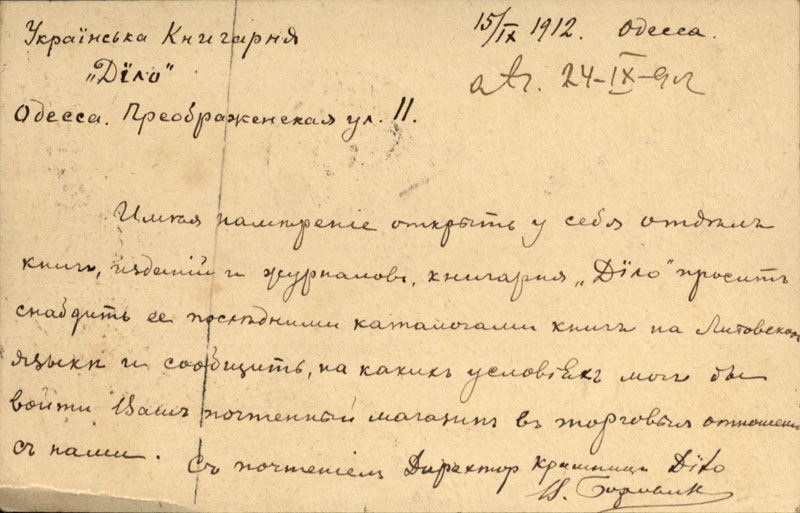 Українська Книгарня
15/IX 1912. Одесса.
„Дїло"
24-IX-
Одесса. Преображенская ул. 11.
Имѣя намѣреніе открыть у себя отдѣлъ
книгъ, изданій и журналовъ, книгарня „Дїло" проситъ
снабдить ее послѣдними каталогами книгъ на Литовскомъ
языкѣ и сообщить, на какихъ условіяхъ могъ бы
войти Вашъ почтенный магазинъ въ торговыя отношенія
съ нами.
Съ почтеніемъ Директор Дїло